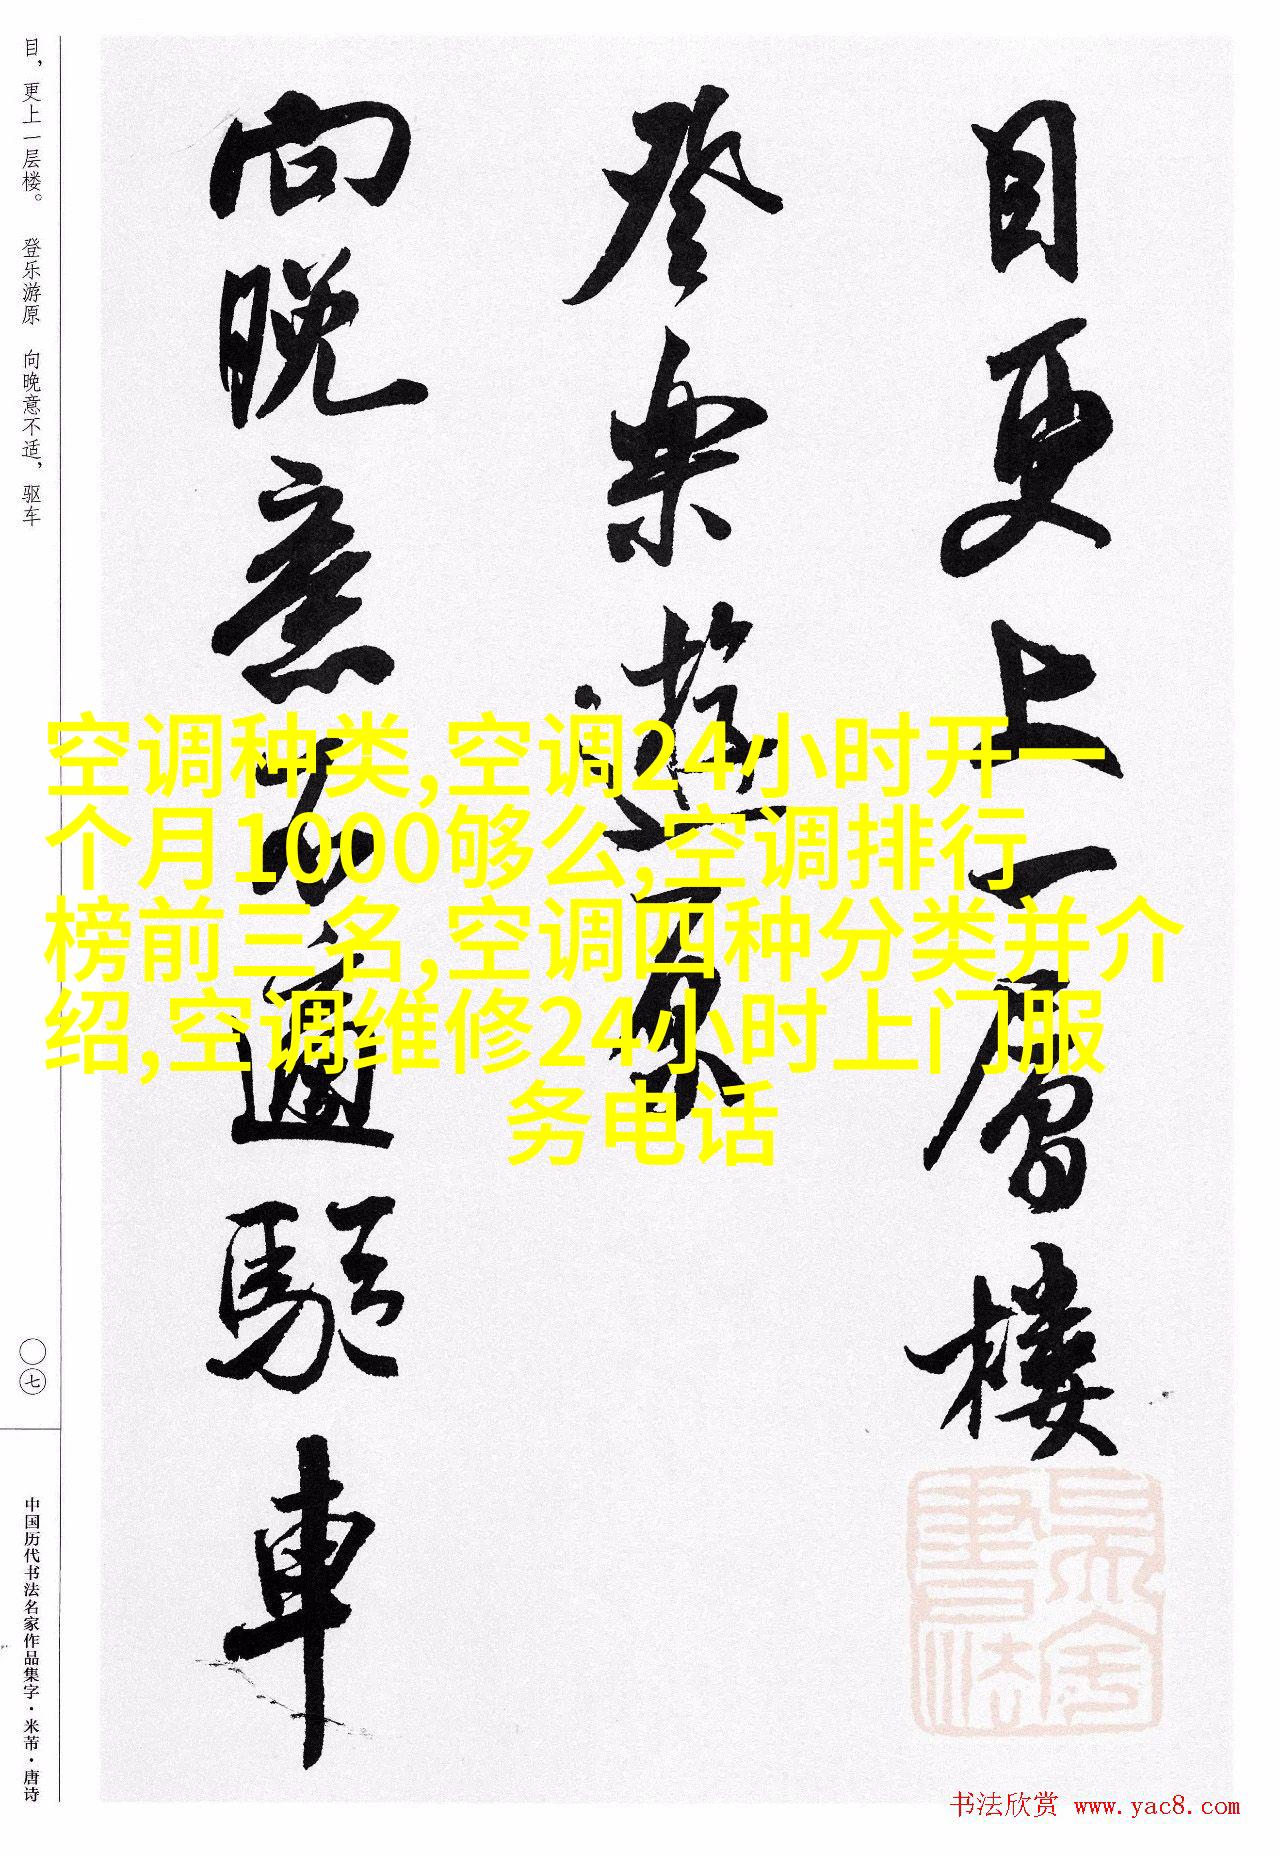 目更上一层楼
登乐游原
向晚意不適驱車
空调种类,空调24小时开一
个月1000够么,空调排行
榜前三名,空调四种分类并介
绍,空调维修24小时上门服
务电话
目，更上一层楼。 登乐游原 向晚意不适，驱车
〇七
中国历代书法名家作品集字·米芾·唐诗
书法欣赏 www.yac8.com